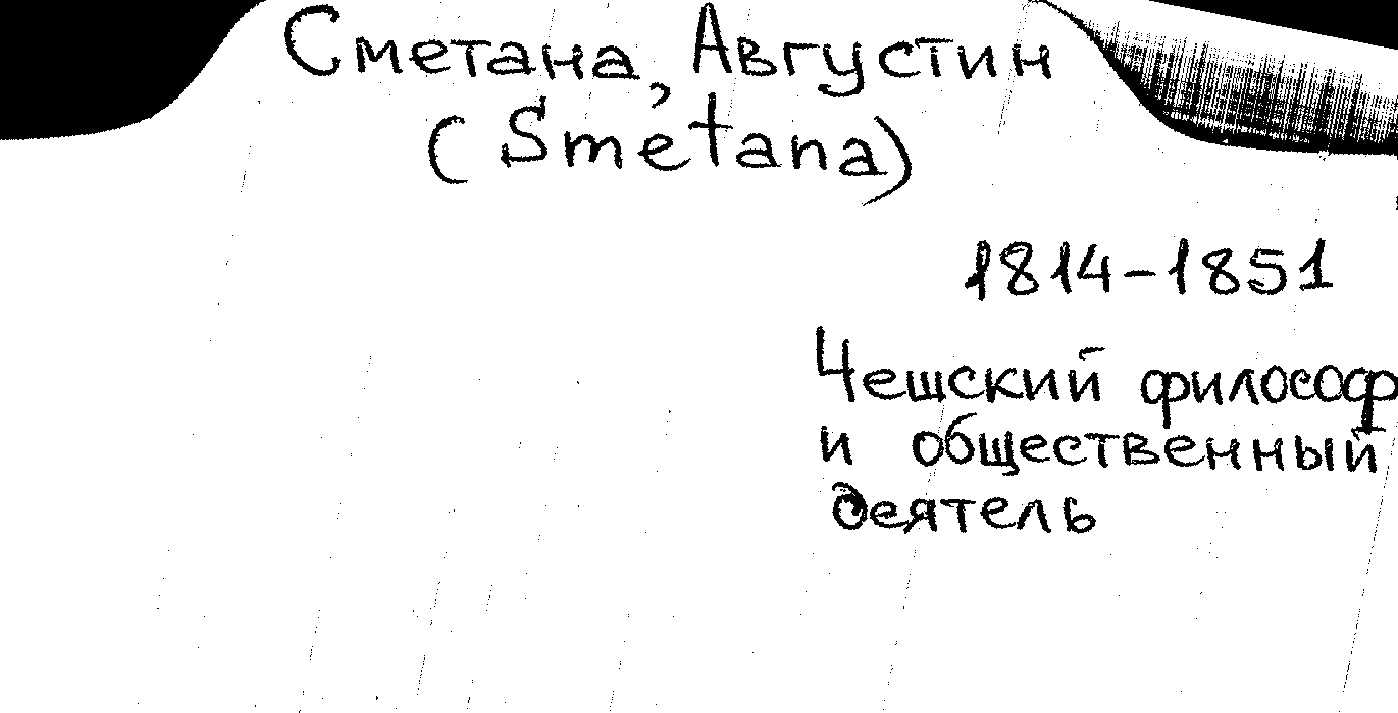 Сметана, Августин
(Smetana)
1814-1851
Чешский философ
и общественный
деятель